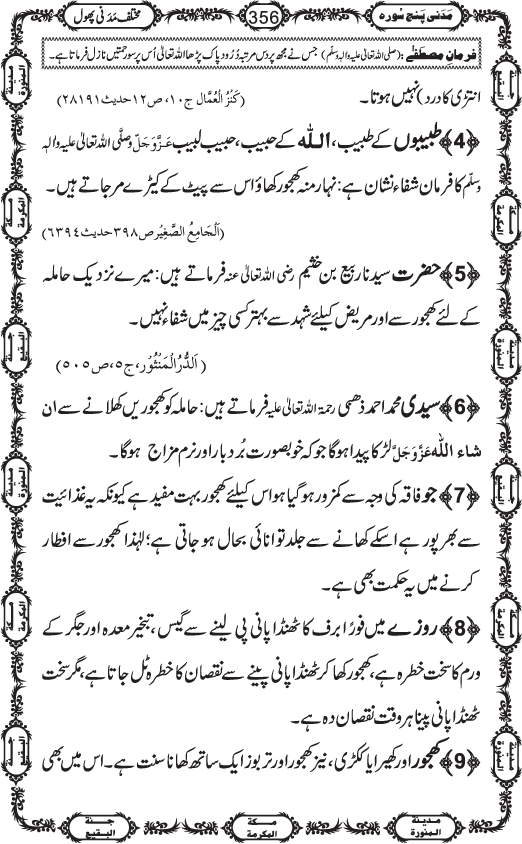 مَدَنی پنج سُورہ 356 مختلف مَدَنی پھول
فرمانِ مصطفٰے : (صلی اللہ تعالیٰ علیہ والہٖ وسلّم) جس نے مجھ پر دس مرتبہ دُرُود پاک پڑھا اللہ تعالیٰ اُس پر سو رحمتیں نازل فرماتا ہے۔
انتڑی کا درد) نہیں ہوتا۔ (کَنْزُ الْعُمَّال ج۱۰، ص۱۲ حدیث ۲۸۱۹۱)
﴿4﴾ طبیبوں کے طبیب، اللہ کے حبیب، حبیبِ لبیب عَزَّوَجَلَّ وصلَّی اللہ تعالیٰ علیہ والہٖ
وسلّم کا فرمانِ شفاء نشان ہے: نہار منہ کھجور کھاؤ اس سے پیٹ کے کیڑے مر جاتے ہیں۔
(اَلْجَامِعُ الصَّغِیْر ص۳۹۸ حدیث ۶۳۹۴)
﴿5﴾ حضرت سیدنا ربیع بن خثیم رضی اللہ تعالیٰ عنہ فرماتے ہیں: میرے نزدیک حاملہ
کے لئے کھجور سے اور مریض کیلئے شہد سے بہتر کسی چیز میں شفاء نہیں۔
(اَلدُّرُّ الْمَنْثُوْر، ج۵، ص۵۰۵)
﴿6﴾ سیدی محمد احمد ذھبی رحمۃ اللہ تعالیٰ علیہ فرماتے ہیں: حاملہ کو کھجوریں کھلانے سے ان
شاء اللہ عَزَّوَجَلَّ لڑکا پیدا ہوگا جو کہ خوبصورت بُردبار اور نرم مزاج ہوگا۔
﴿7﴾ جو فاقہ کی وجہ سے کمزور ہو گیا ہو اس کیلئے کھجور بہت مفید ہے کیونکہ یہ غذائیت
سے بھرپور ہے اسکے کھانے سے جلد توانائی بحال ہو جاتی ہے؛ لہٰذا کھجور سے افطار
کرنے میں یہ حکمت بھی ہے۔
﴿8﴾ روزے میں فورًا برف کا ٹھنڈا پانی پی لینے سے گیس، تبخیرِ معدہ اور جگر کے
ورم کا سخت خطرہ ہے، کھجور کھا کر ٹھنڈا پانی پینے سے نقصان کا خطرہ ٹل جاتا ہے، مگر سخت
ٹھنڈا پانی پینا ہر وقت نقصان دہ ہے۔
﴿9﴾ کھجور اور کھیرا یا ککڑی، نیز کھجور اور تربوز ایک ساتھ کھانا سنت ہے۔ اس میں بھی
مدینۃ المنورۃ
مکۃ المکرمۃ
جنۃ البقیع
مدینۃ المنورۃ
مکۃ المکرمۃ
جنۃ البقیع
جنۃ البقیع
مکۃ المکرمۃ
مدینۃ المنورۃ
جنۃ البقیع
مکۃ المکرمۃ
مدینۃ المنورۃ
مدینۃ المنورۃ
مکۃ المکرمۃ
جنۃ البقیع